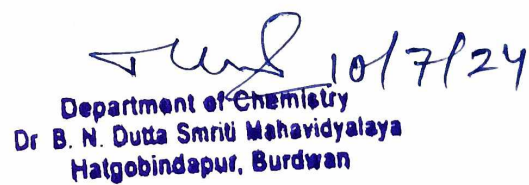 10/7/24
Department of Chemistry
Dr B. N. Dutta Smriti Mahavidyalaya
Hatgobindapur, Burdwan